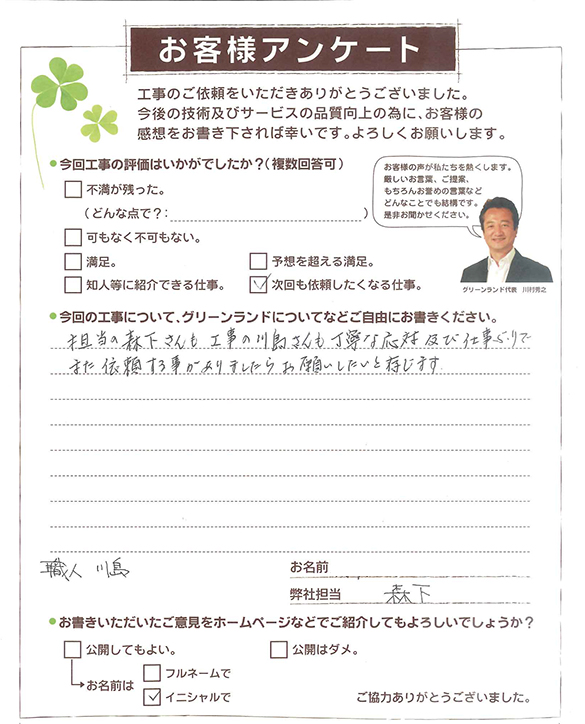 お客様アンケート
工事のご依頼をいただきありがとうございました。
今後の技術及びサービスの品質向上の為に、お客様の
感想をお書き下されば幸いです。よろしくお願いします。
●今回工事の評価はいかがでしたか?(複数回答可)
お客様の声が私たちを熱くします。
厳しいお言葉、ご提案、
もちろんお誉めの言葉など
どんなことでも結構です。
是非お聞かせください。
グリーンランド代表 川村秀之
不満が残った。
(どんな点で?: )
可もなく不可もない。
満足。 予想を超える満足。
知人等に紹介できる仕事。 次回も依頼したくなる仕事。
●今回の工事について、グリーンランドについてなどご自由にお書きください。
担当の森下さんも工事の川島さんも丁寧な応対及び仕事ぶりで
また依頼する事がありましたらお願いしたいと存じます
職人 川島
お名前
弊社担当 森下
●お書きいただいたご意見をホームページなどでご紹介してもよろしいでしょうか?
公開してもよい。 公開はダメ。
お名前は フルネームで
イニシャルで
ご協力ありがとうございました。